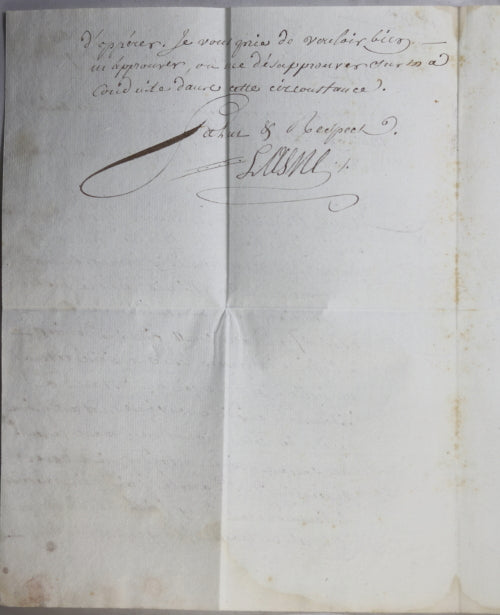 d'opérer. Je vous prie de vouloir bien —
m'approuver, ou me désapprouver sur ma
Conduite dans cette circonstance.
Salut & Respect.
Lasne